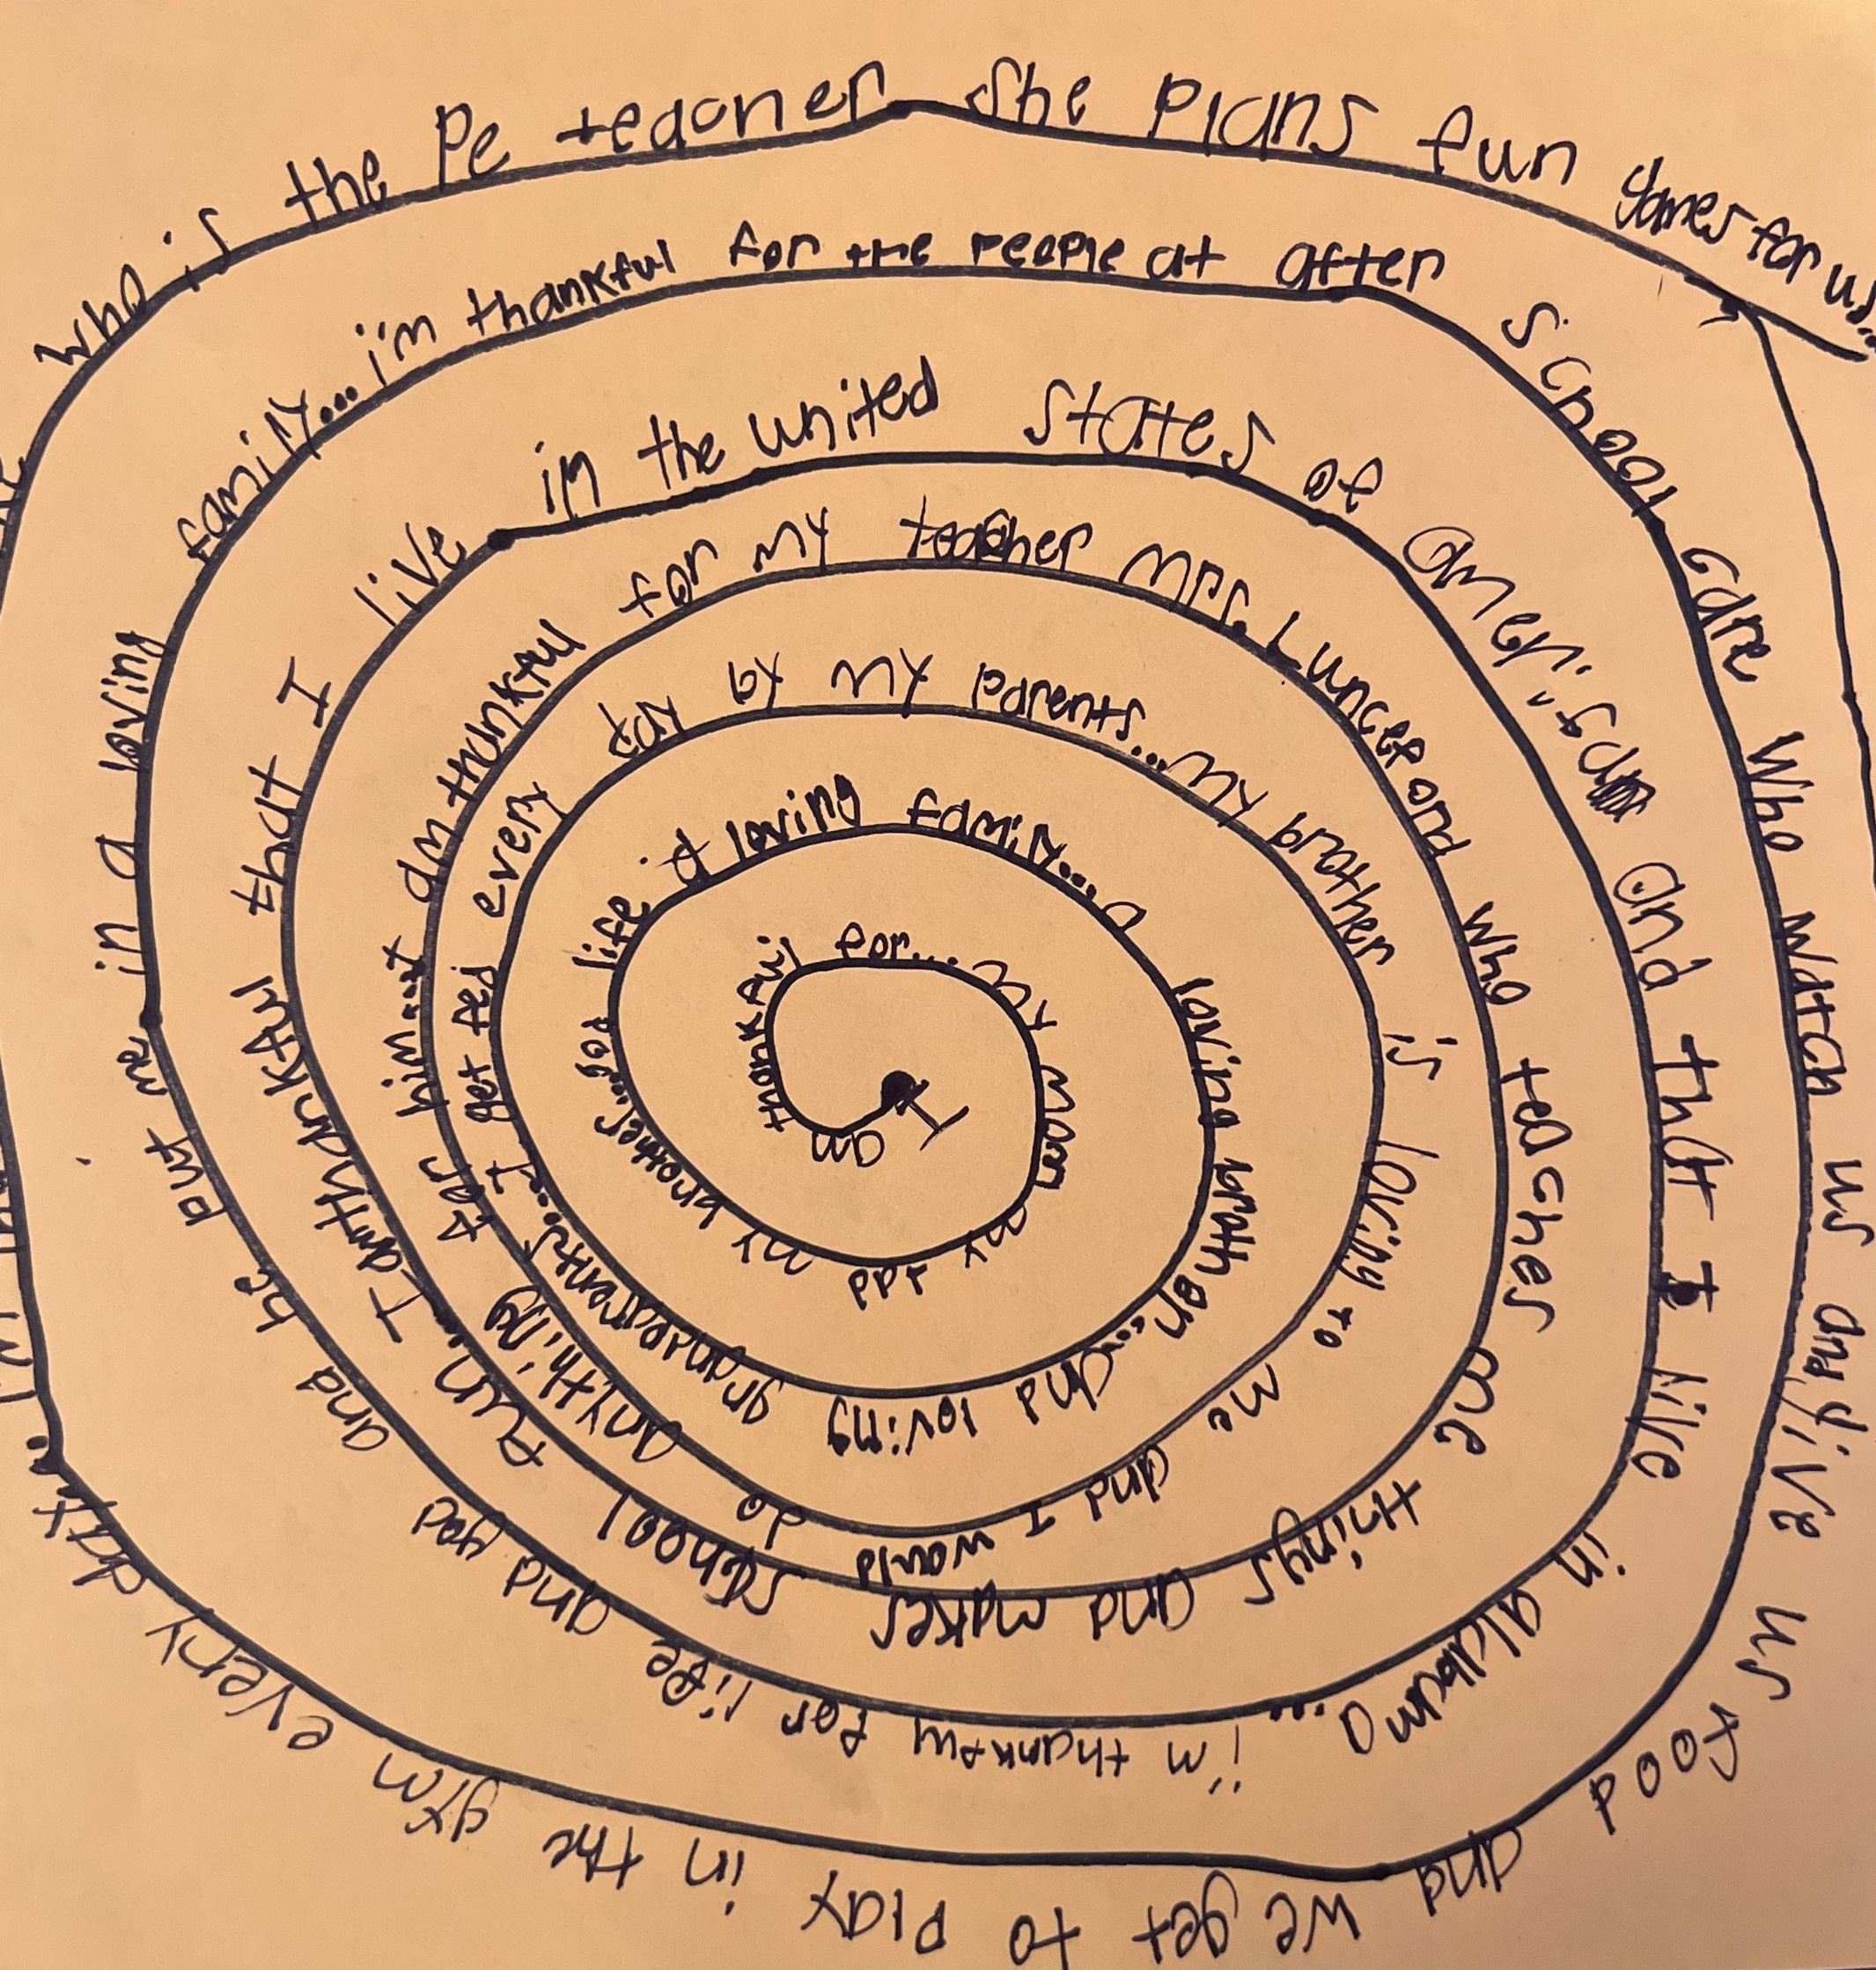 I am thankful for... my mom my dad my brother...god life, a loving family... a loving brother... and loving grandparents... I get fed every day by my parents... my brother is loving to me and I would do anything for him...I am thankful for my teacher Mrs. Lunceford who teaches me things and makes school fun... I am thankful that I live in the united states of america and that I like in alabama... i'm thankful for life and and god and he put me in a loving family... i'm thankful for the people at after school care who watch us and give us food and we get to play in the gym every day... who is the Pe teacher she plans fun games for us...